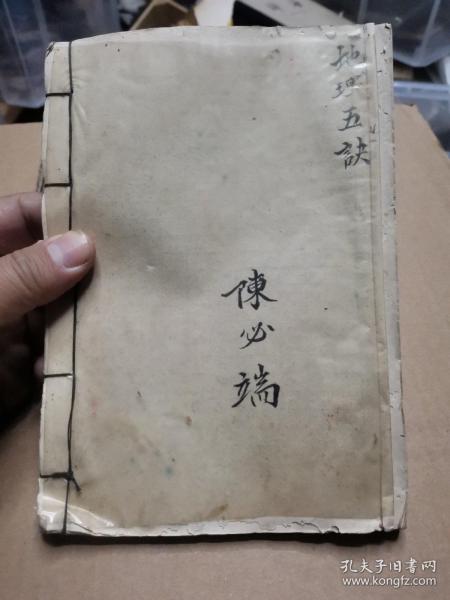 地理五訣
陳必端
孔夫子旧书网
www.kongfz.com